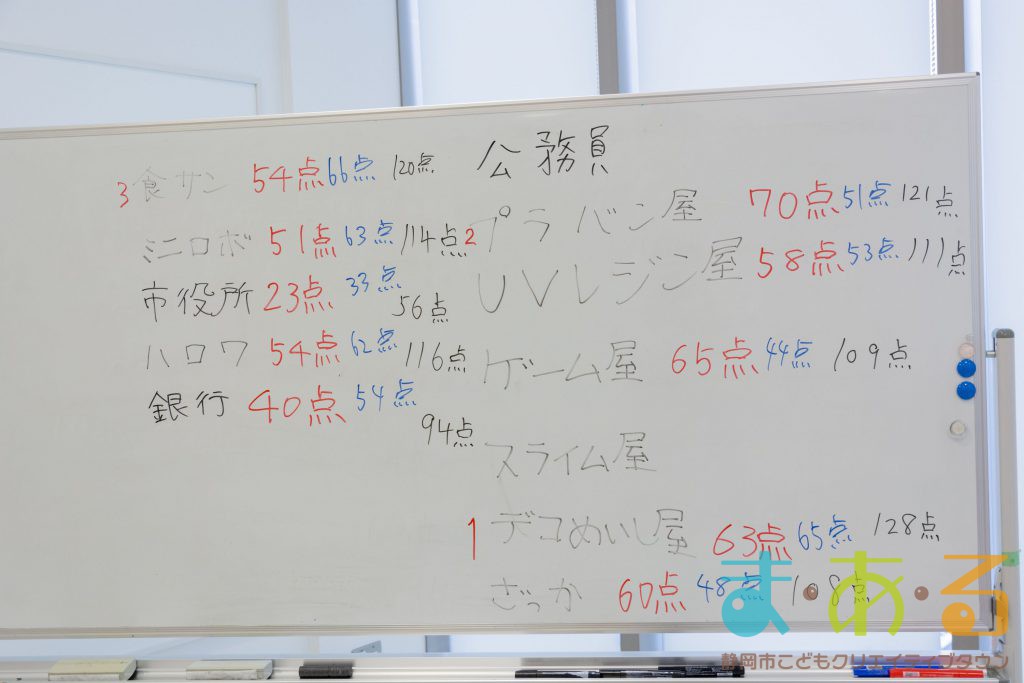 3 食サン 54点 66点 120点
ミニロボ 51点 63点 114点
市役所 23点 33点 56点
ハロワ 54点 62点 116点
銀行 40点 54点 94点
公務員
2 プラバン屋 70点 51点 121点
UVレジン屋 58点 53点 111点
ゲーム屋 65点 44点 109点
スライム屋
1 デコめいし屋 63点 65点 128点
ざっか 60点 48点 108点
まある
静岡市こどもクリエイティブタウン